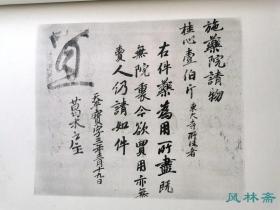 施藥院請物
桂心壹伯斤 東大寺所收者
右件藥為用所盡既
無院裏今欲買用亦無
賣人仍請如件
天平寶字三年三月十九日
葛木戸主
宜
风林斋